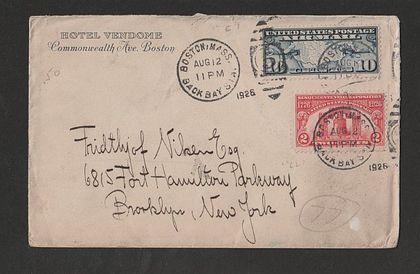 HOTEL VENDOME
Commonwealth Ave. Boston
BOSTON, MASS.
AUG 12
11 PM
BACK BAY STA.
1926
UNITED STATES POSTAGE
AIR MAIL
10
SESQUICENTENNIAL EXPOSITION
1776 1926
2 2
BOSTON, MASS.
AUG 12
11 PM
BACK BAY STA.
1926
Fridthjof Nilsen Esq.
6815 Fort Hamilton Parkway
Brooklyn, New York
77
.50